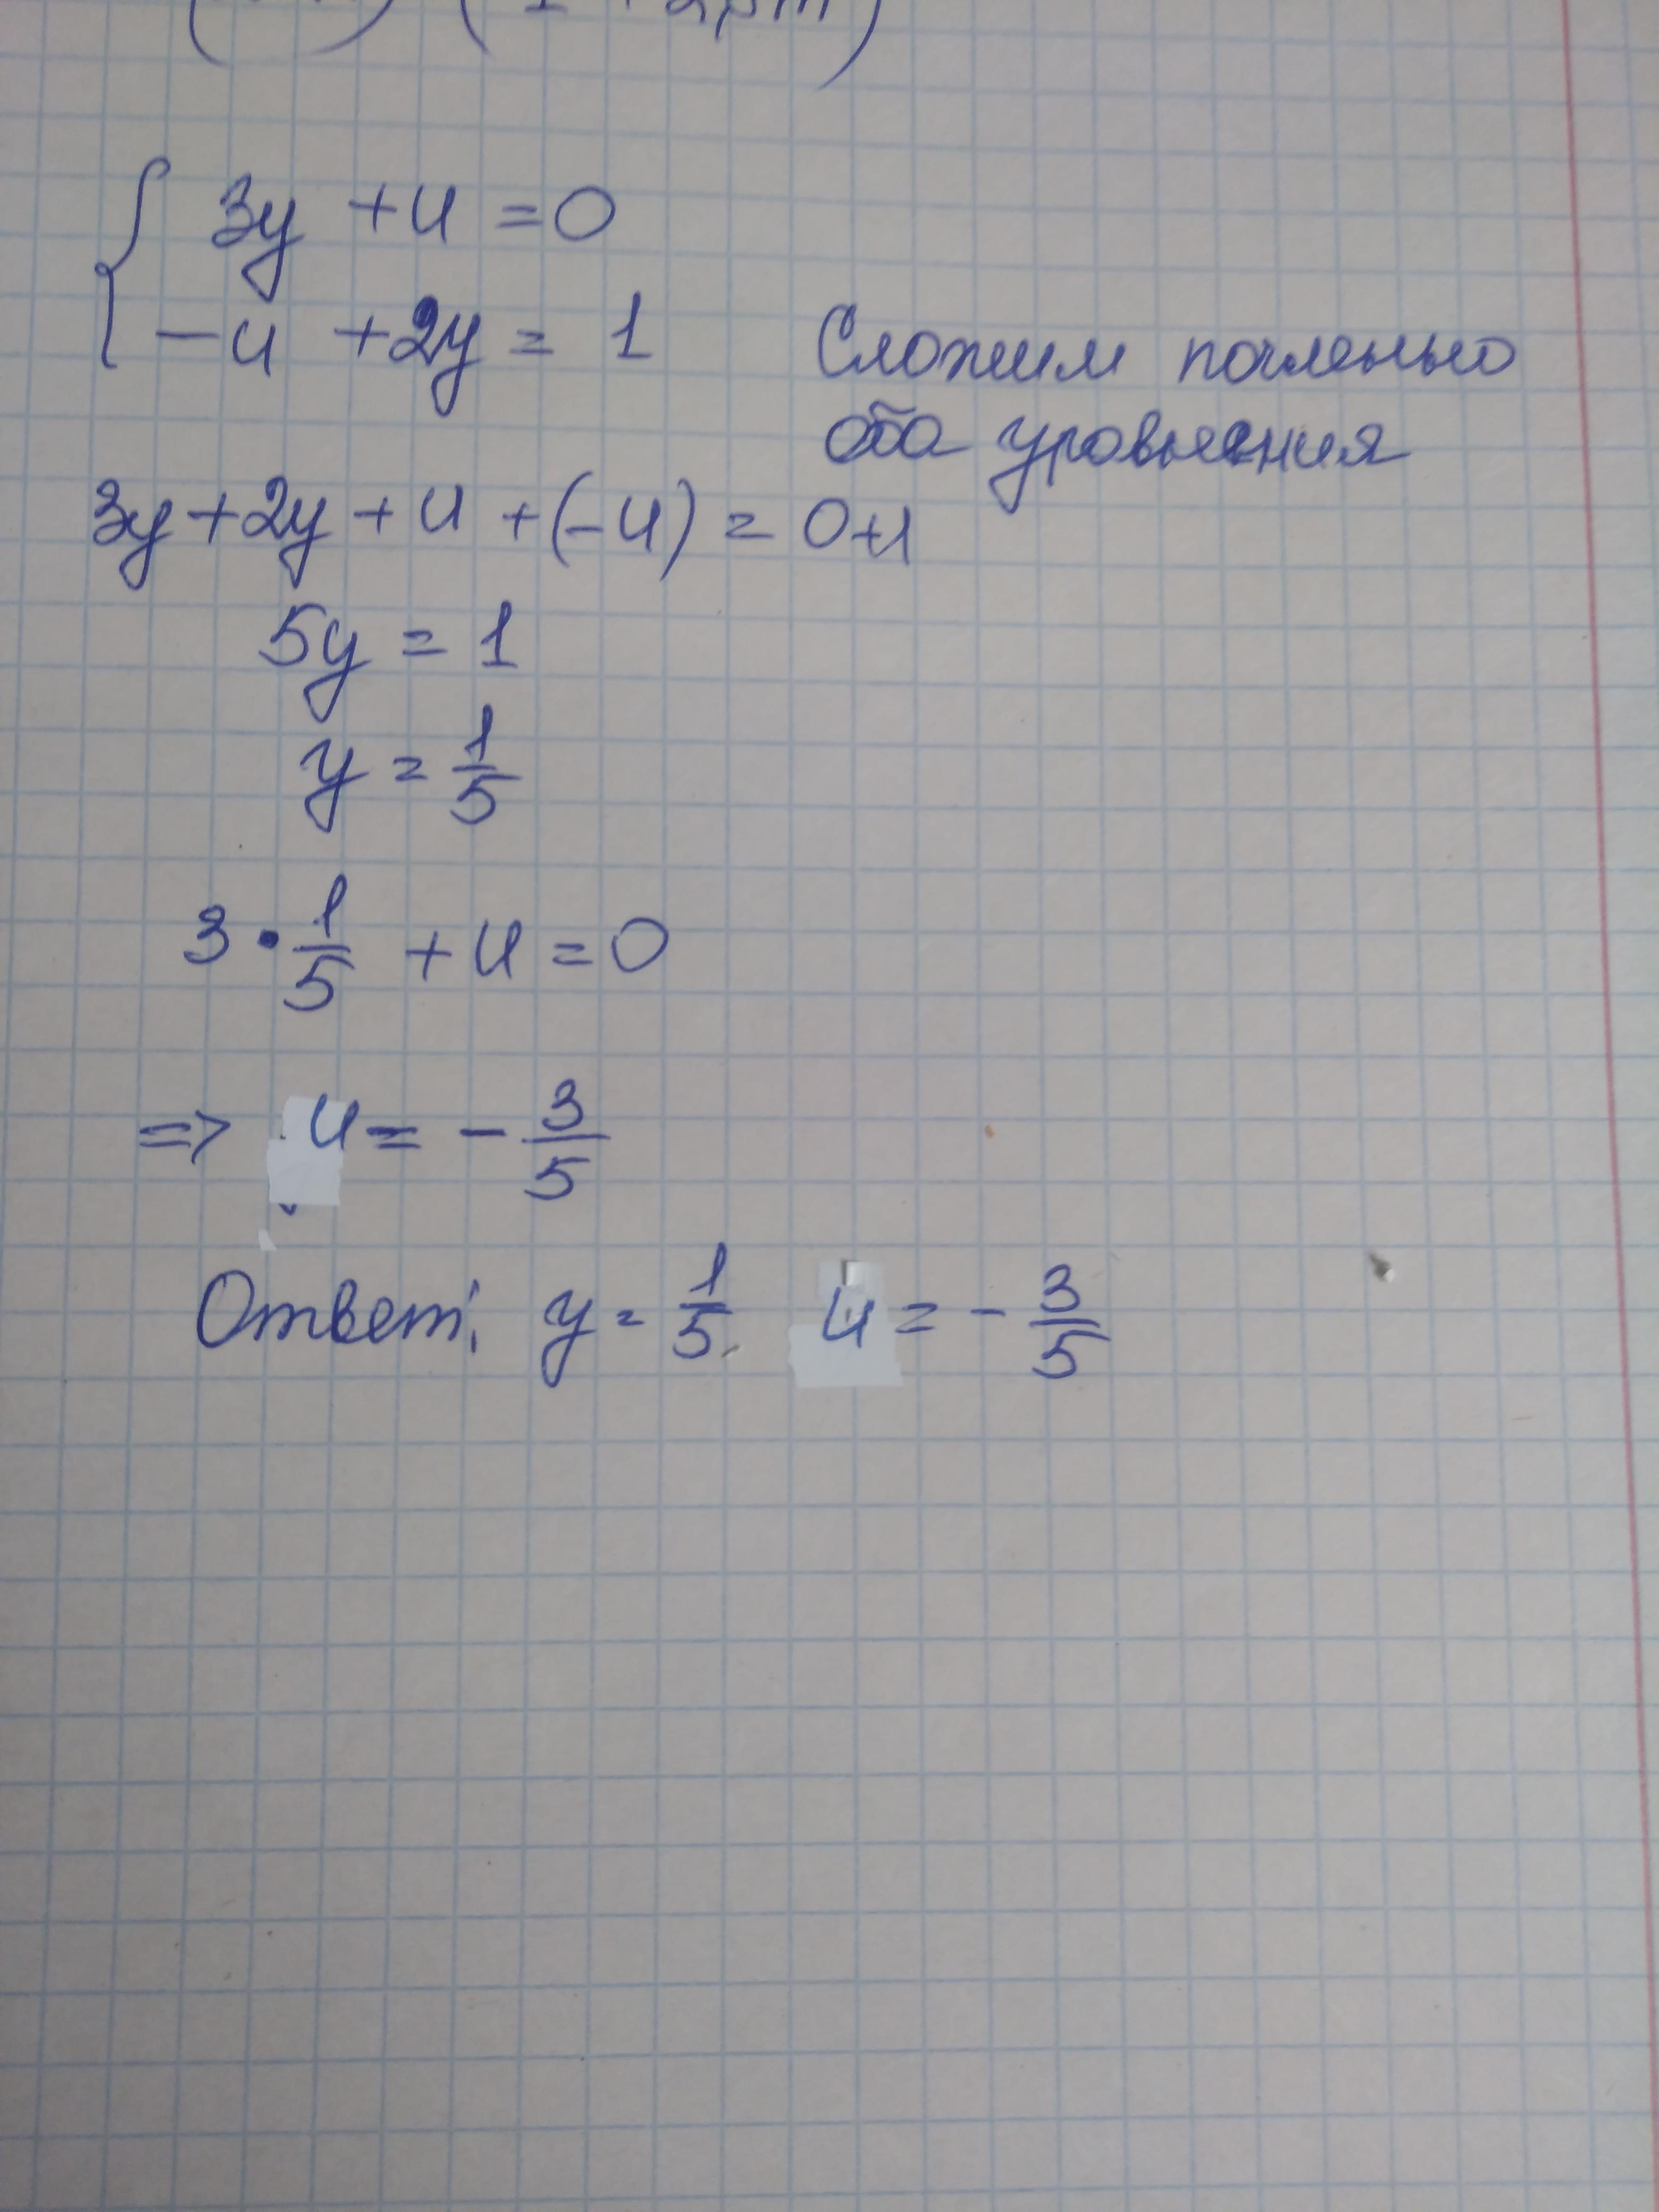 3y + u = 0
-u + 2y = 1
Сложим почленно
оба уровнения
3y + 2y + u + (-u) = 0+1
5y = 1
y = 1/5
3 • 1/5 + u = 0
=> u = - 3/5
Ответ: y = 1/5 u = - 3/5